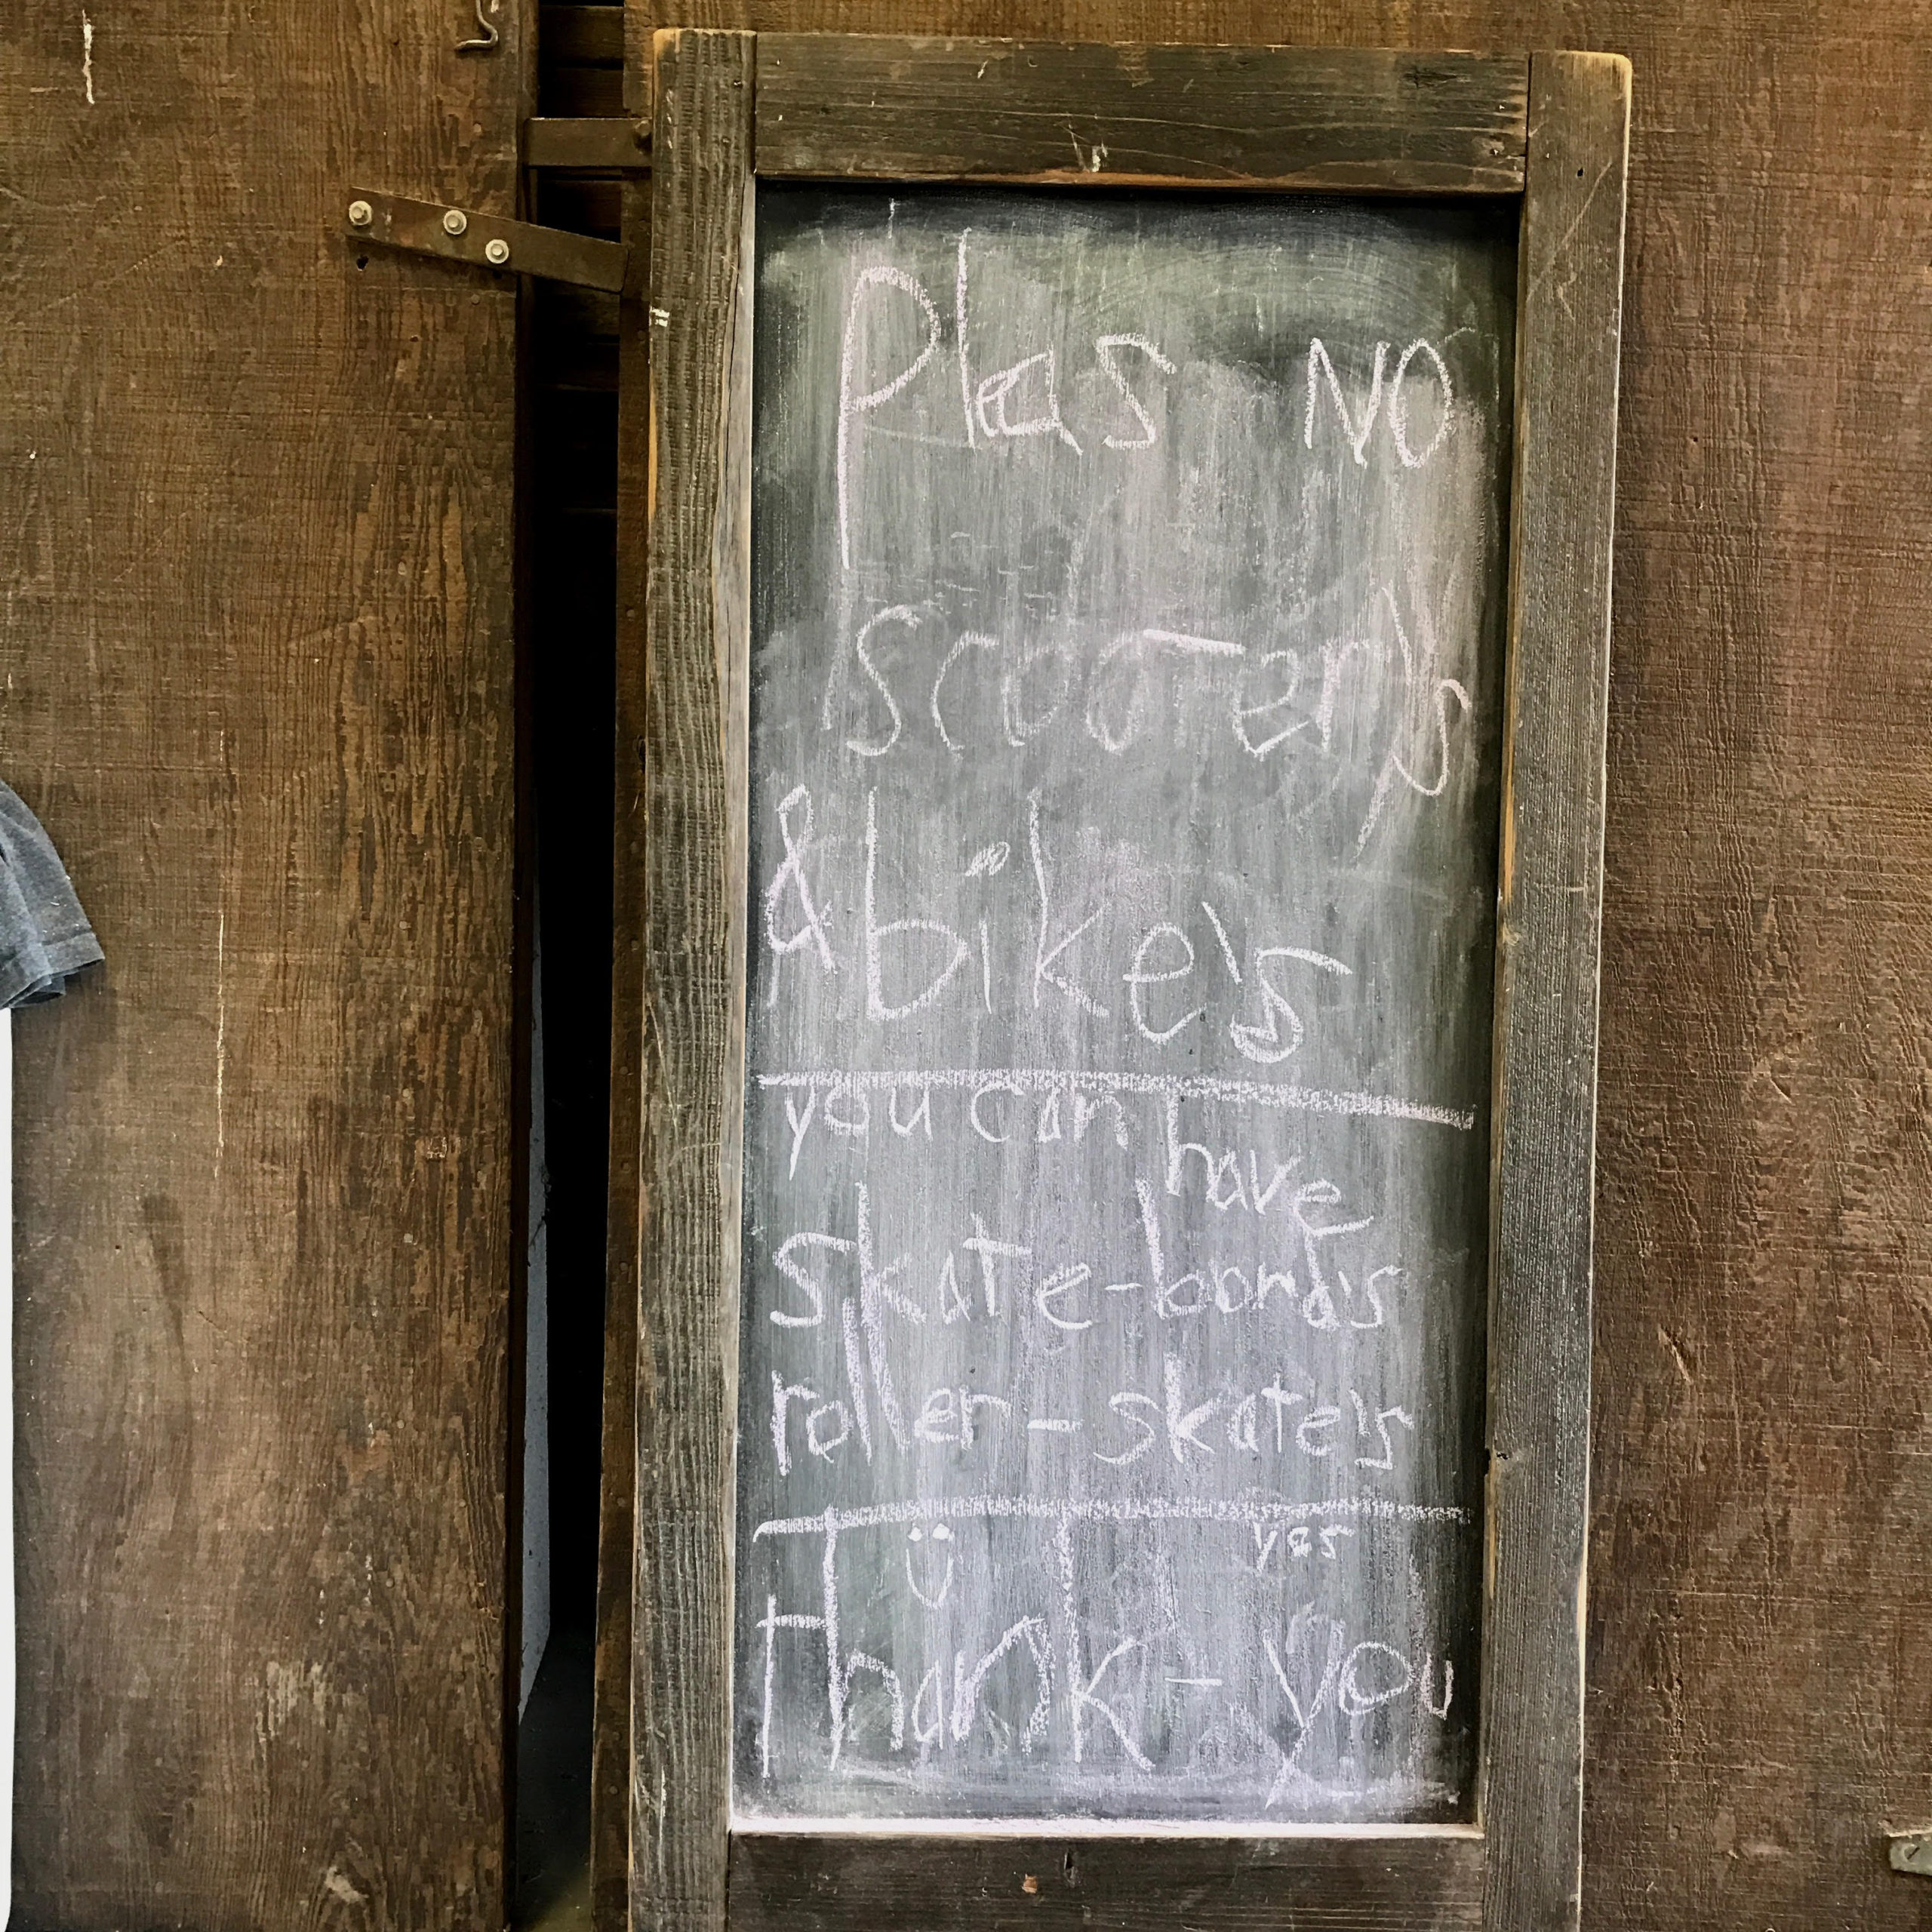 Pleas NO
scooter's
& bike's
you can have
skate-bord's
roller-skate's
yes
thank-you